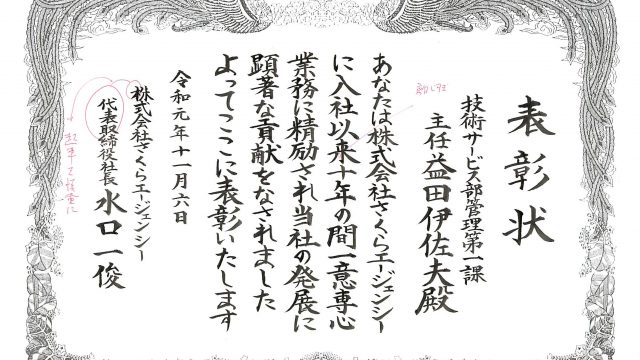 表彰状
技術サービス部管理第一課
主任益田伊佐夫殿
あなたは株式会社さくらエージェンシー
に入社以来十年の間一意専心
業務に精励され当社の発展に
顕著な貢献をなされました
よってここに表彰いたします
令和元年十一月六日
株式会社さくらエージェンシー
代表取締役社長
水口一俊